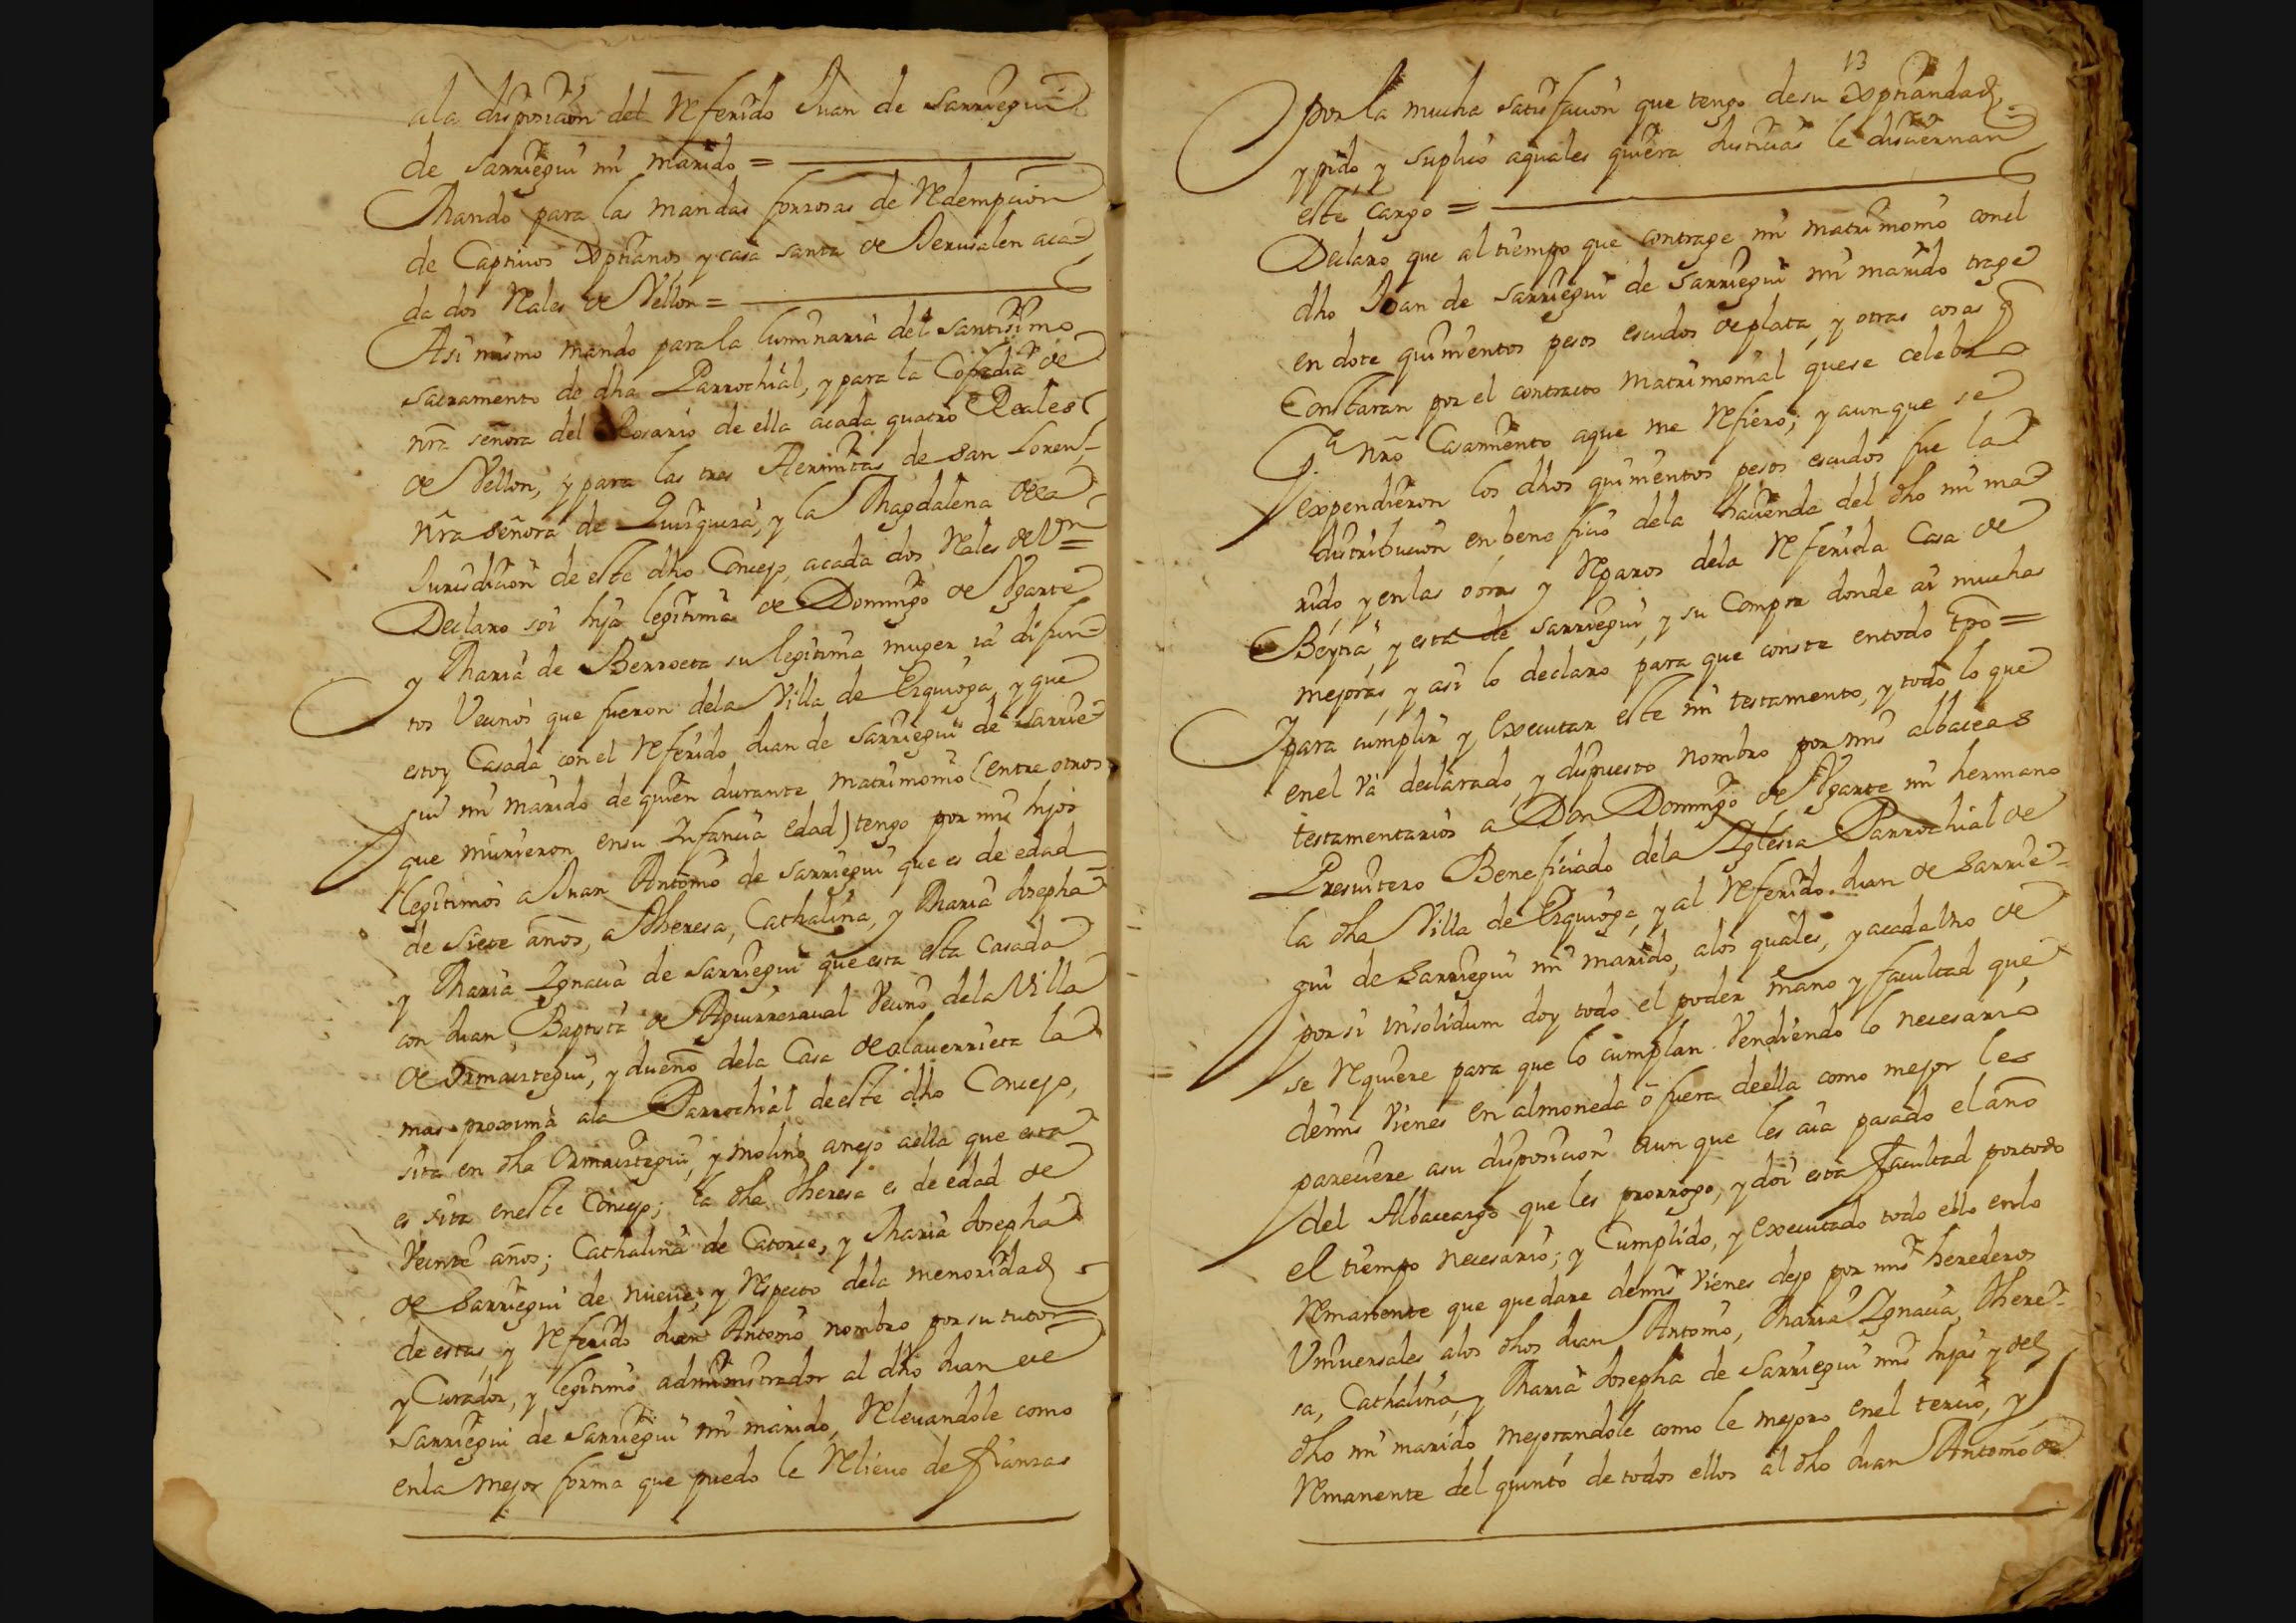 ala disposicion del Referido Juan de Sarriegui
de Sarriegui mi marido =
Mando para las mandas forzosas de Redempcion
de Captiuos Xptianos, y casa santa de Jerusalen aca-
da dos Rales de Vellon =
Asi mismo mando para la luminaria del Santisimo
sacramento de dha Parrochial, y para la Cofradia de
nra señora del Rosario de ella acada quatro Reales
de Vellon, y para las tres Hermitas de San Loren-
nra señora de Quizquiza, y la Magdalena dela
Jurisdicion de este dho Concejo, acada dos Rales de Von =
Declaro soi hija legitima de Domingo de Ygarte
y Maria de Berroeta su legitima muger ia difun-
tos Vecinos que fueron dela Villa de Ezquioga, y que
estoy Casada con el Referido Juan de Sarriegui de Sarrie
gui mi marido de quien durante matrimonio (entre otros
que murieron ensu Infancia edad) tengo por mis hijos
legitimos a Juan Antonio de Sarriegui que es de edad
de siete años, a Theresa, Cathalina, y Maria Josepha
y Maria Ignacia de Sarriegui que esta esta Casada
con Juan Baptista de Aguirrezaual Vecino dela Villa
de Ormaiztegui, y dueño dela Casa de olauerrieta la
mas proxima ala Parrochial deeste dho Concejo,
sita en dha Ormaiztegui, y molino anejo aella que esta
es sita eneste Concejo; la dha Theresa es de edad de
Veinte años; Cathalina de Catorce, y Maria Josepha
de Sarriegui de nueue, y Respecto dela menoridad
de estas, y Referido Juan Antonio nombro por su tutor
y Curador, y legitimo administrador al dho Juan de
Sarriegui de Sarriegui mi marido, Releuandole como
enla mejor forma que puedo le Relieuo de fianzas
13
por la mucha satisfacion que tengo desu Xptiandad,
y pido, y suplico aquales quiera Justicias le disciernan
este cargo =
Declaro que al tiempo que contrage mi matrimonio conel
dho Joan de Sarriegui de Sarriegui mi marido trage
en dote quinientos pesos escudos de plata, y otras cosas q
Constaran por el contracto matrimonial quese celebro
pa nro Casamiento aque me Refiero; y aunque se
expendieron los dhos quinientos pesos escudos fue la
distribucion en beneficio dela hacienda del dho mi ma
rido, y enlas obras y Reparos dela Referida Casa de
Beytia, y esta de Sarriegui, y su Compra donde ai muchas
mejoras, y asi lo declaro para que conste entodo tpo =
Ypara cumplir y Executar este mi testamento, y todo lo que
enel va declarado, y dispuesto nombro por mis albaceas
testamentarios a Don Domingo de Ygarte mi hermano
Presuitero Beneficiado dela Yglesia Parrochial de
la dha Villa de Ezquioga, y al Referido Juan de Sarrie-
gui de Sarriegui mi marido, alos quales, y acada Uno de
por si Insolidum doy todo el poder mano y facultad que
se Requiere para que lo cumplan Vendiendo lo necesario
demis Vienes en almoneda o fuera deella como mejor les
pareciere asu disposicion aun que les aia pasado el año
del Albaceazgo que les prorrogo, y doi esta facultad portodo
el tiempo necesario; y Cumplido, y executado todo ello enlo
Remanente que quedare demis Vienes dejo por mis herederos
Vniuersales alos dhos Juan Antonio, Maria Ignacia, There-
sa, Cathalina, y Maria Josepha de Sarriegui mis hijos y del
dho mi marido mejorandole como le mejoro enel tercio, y
Remanente del quinto de todos ellos al dho Juan Antonio de